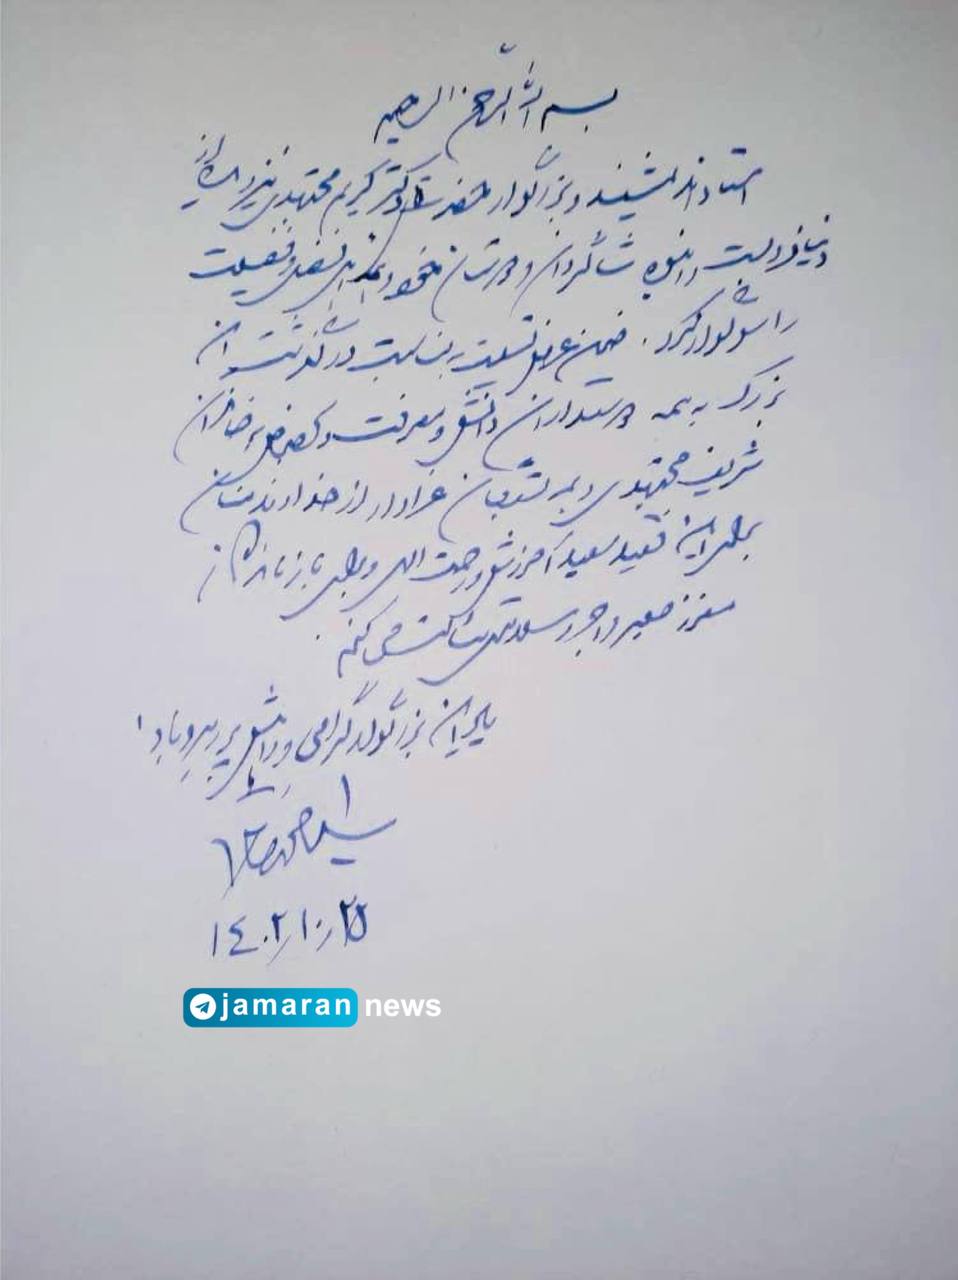 بسم الله الرحمن الرحیم
استاد اندیشمند و بزرگوار حضرت دکتر کریم مجتهدی نیز دیده از
دنیا فروبست و انبوه شاگردان و دوستان خود و اهل فضل و فضیلت
را سوگوار کرد. ضمن عرض تسلیت به مناسبت درگذشت آن
بزرگ به همه دوستداران دانش و معرفت و بخصوص خاندان
شریف مجتهدی و همه منسوبان عزادار از خداوند منان
برای آن فقید سعید آمرزش و رحمت الهی و برای بازماندگان
معزز صبر و اجر و سعادت مسألت می کنم.
یاد آن بزرگوار گرامی و راهش پر رهرو باد!
سید محمد خاتمی
۱۴۰۲/۱۰/۲۵
jamaran news